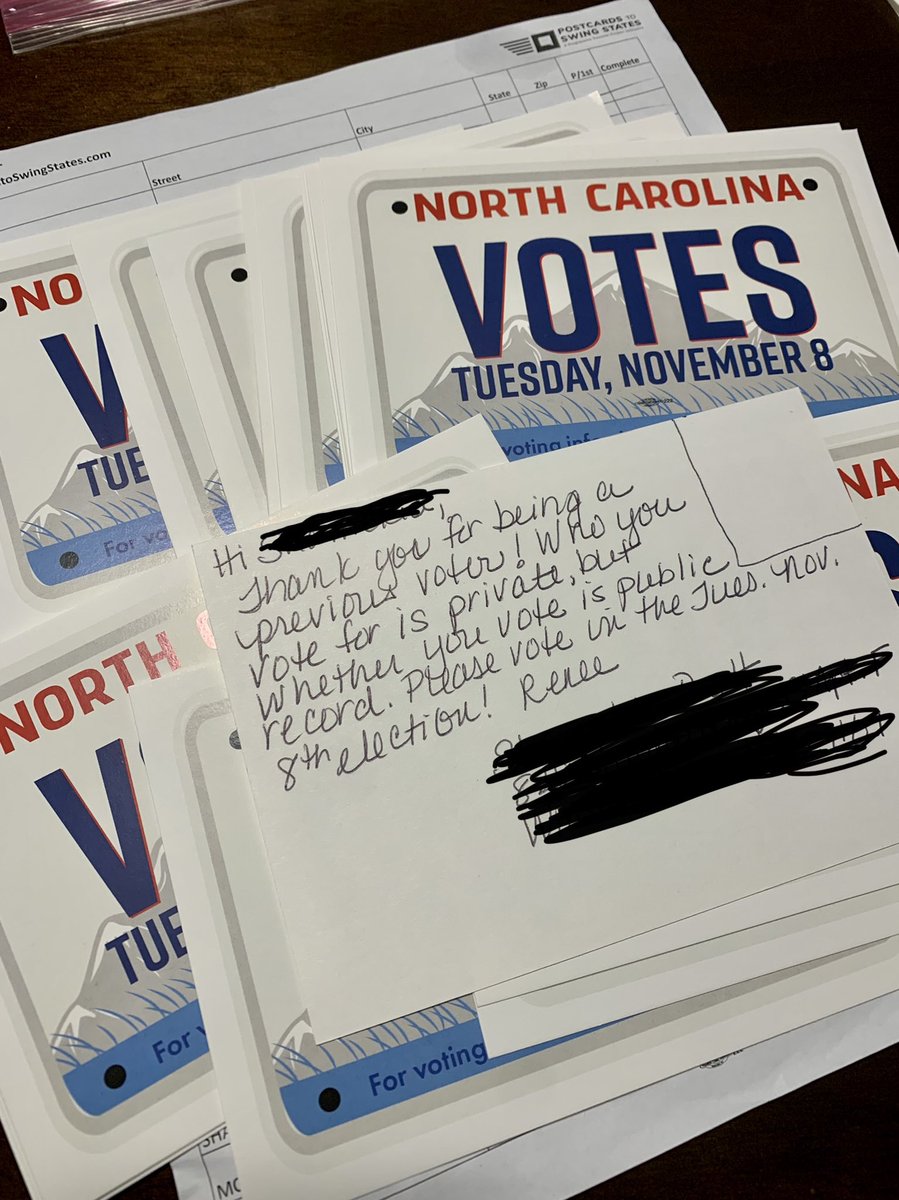 POSTCARDS TO
SWING STATES
State Zip P/1st Complete
City
toSwingStates.com
Street
NORTH CAROLINA
VOTES
TUESDAY, NOVEMBER 8
voting
NO
V
TUE
For vo
NA
Hi
Thank you for being a
previous voter! Who you
vote for is private, but
whether you vote is public
record. Please vote in the Tues. Nov.
8th election! Renee
NORTH
V
TUE
For v
For voting
SHA
MO